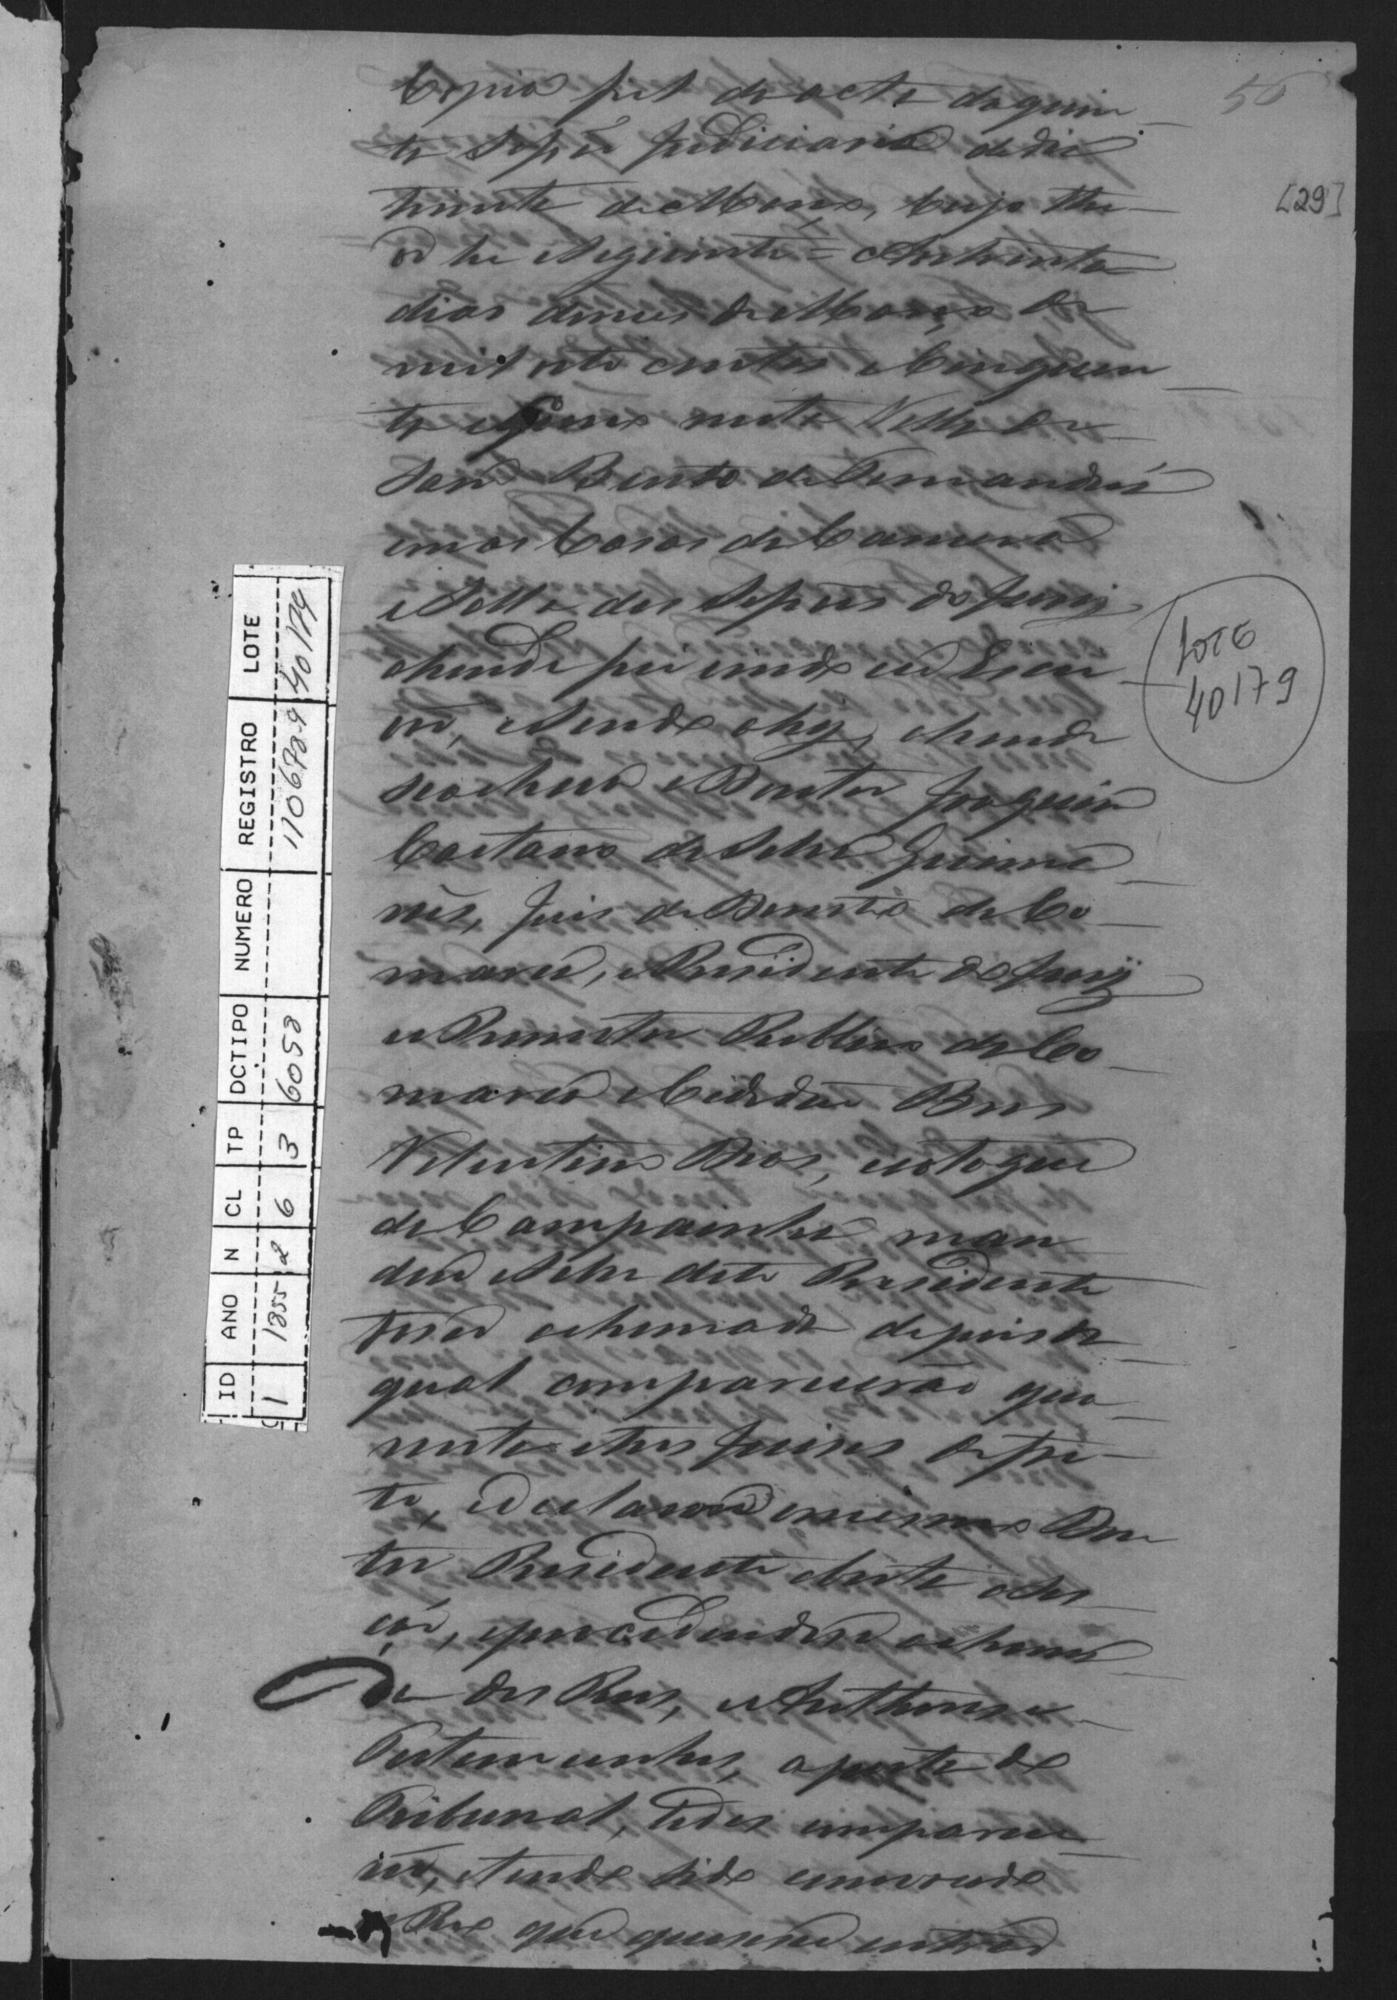 50
[29]
Copia fiel da acta da quin-
ta Sessão Judiciaria do dia
trinta de Março, cujo the-
or he seguinte = Aos trinta
dias do mes de Março de
mil oito centos e Cincoen-
ta e Sinco nesta Villa de
São Bento de Tamanduá
em as Casas da Camara
e Salla das Sessões do Jury
ahonde foi vindo eu Escri-
vão, e sendo ahy, ahonde
se achava o Doutor Joaquim
Caetano da Silva Guima-
rães, Juis de Direito da Co-
marca, e Presidente do Jury
o Promotor Publico da Co-
marca o Cidadão Bras
Valentino Dias, ao toque
de Campainha man-
dou o Sobre dito Presidente
faser a chamada depois da
qual comparecerão qua-
renta e tres Juises de fac-
to, e declarou o mesmo Dou-
tor Presidente aberta a Ses-
ção, e procedendo-se a chama-
da dos Reos, e Authores e
Testemunhas, a porta do
Tribunal, todos comparece-
rão, e tendo sido
o Reo que
LOTE
40179
ID ANO N CL TP DCTIPO NUMERO REGISTRO LOTE
1 1855 2 6 3 6053 110678-9 40179